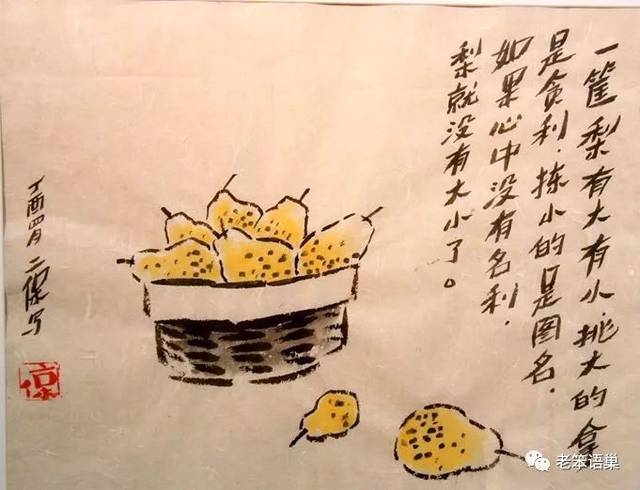 一筐梨有大有小挑大的拿
是贪利.拣小的是图名.
如果心中没有名利.
梨就没有大小了。
丁酉四月 二保写
老笨语巢